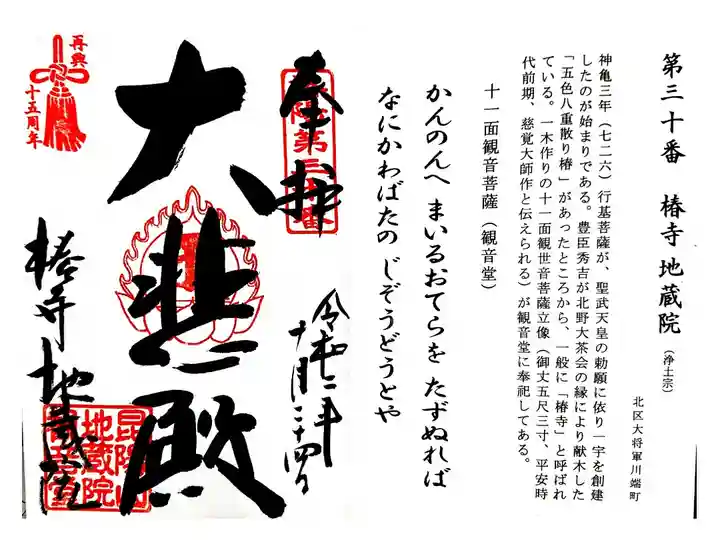 第三十番 椿寺地蔵院（浄土宗）
北区大将軍川端町
神亀三年（七二六）行基菩薩が、聖武天皇の勅願に依り一宇を創建
したのが始まりである。豊臣秀吉が北野大茶会の縁により献木した
「五色八重散り椿」があったところから、一般に「椿寺」と呼ばれ
ている。一木作りの十一面観世音菩薩立像（御丈五尺三寸、平安時
代前期、慈覚大師作と伝えられる）が観音堂に奉祀してある。
十一面観音菩薩（観音堂）
かんのんへ まいるおてらを たずぬれば
なにかわばたの じぞうどうとや
奉拝
洛陽第三十番
令和二年
十月二十四日
大悲殿
椿寺 地蔵院
昆陽山
地蔵院
観音堂
再興
十五周年